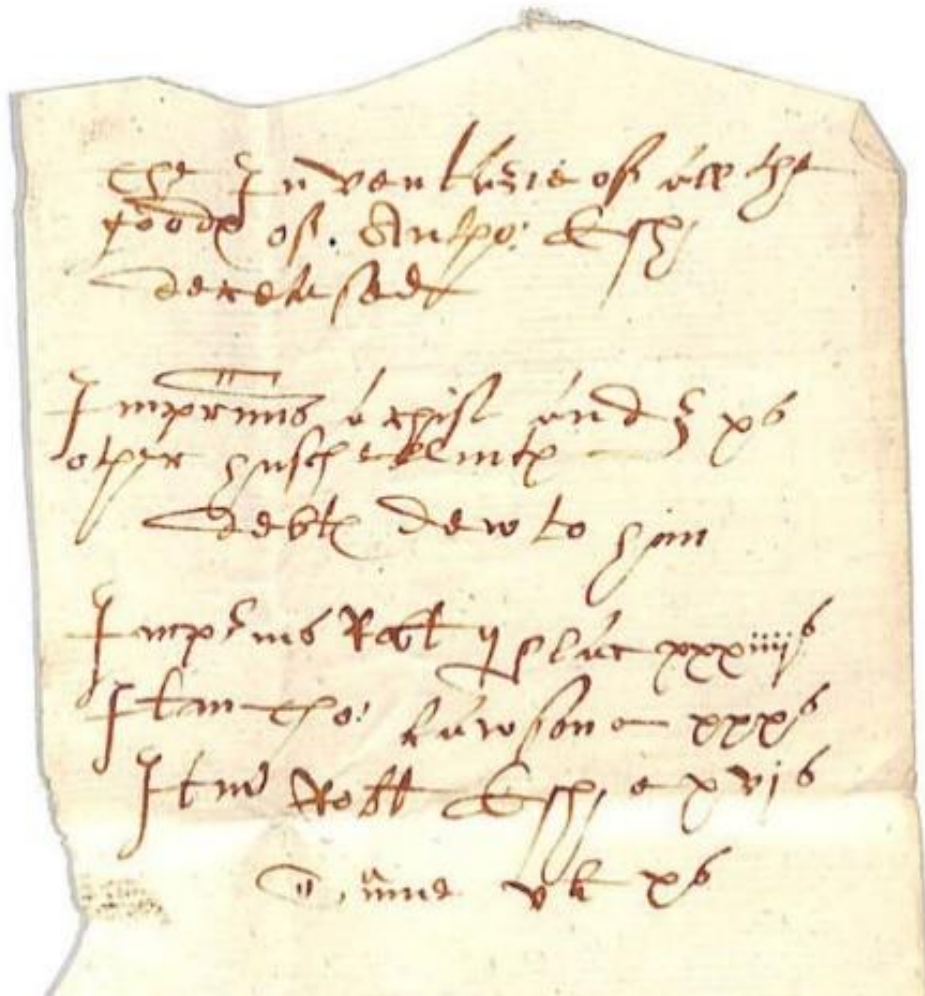 The Inventarie of all the
good of . Antho: Esh
deceased
Imprimis a chist and xs
other huschelmt
debt dew to him
Impimis Robt xxxiiijs
Itam Tho: Lawson xxxs
Itm Robt Esh xvjs
xs